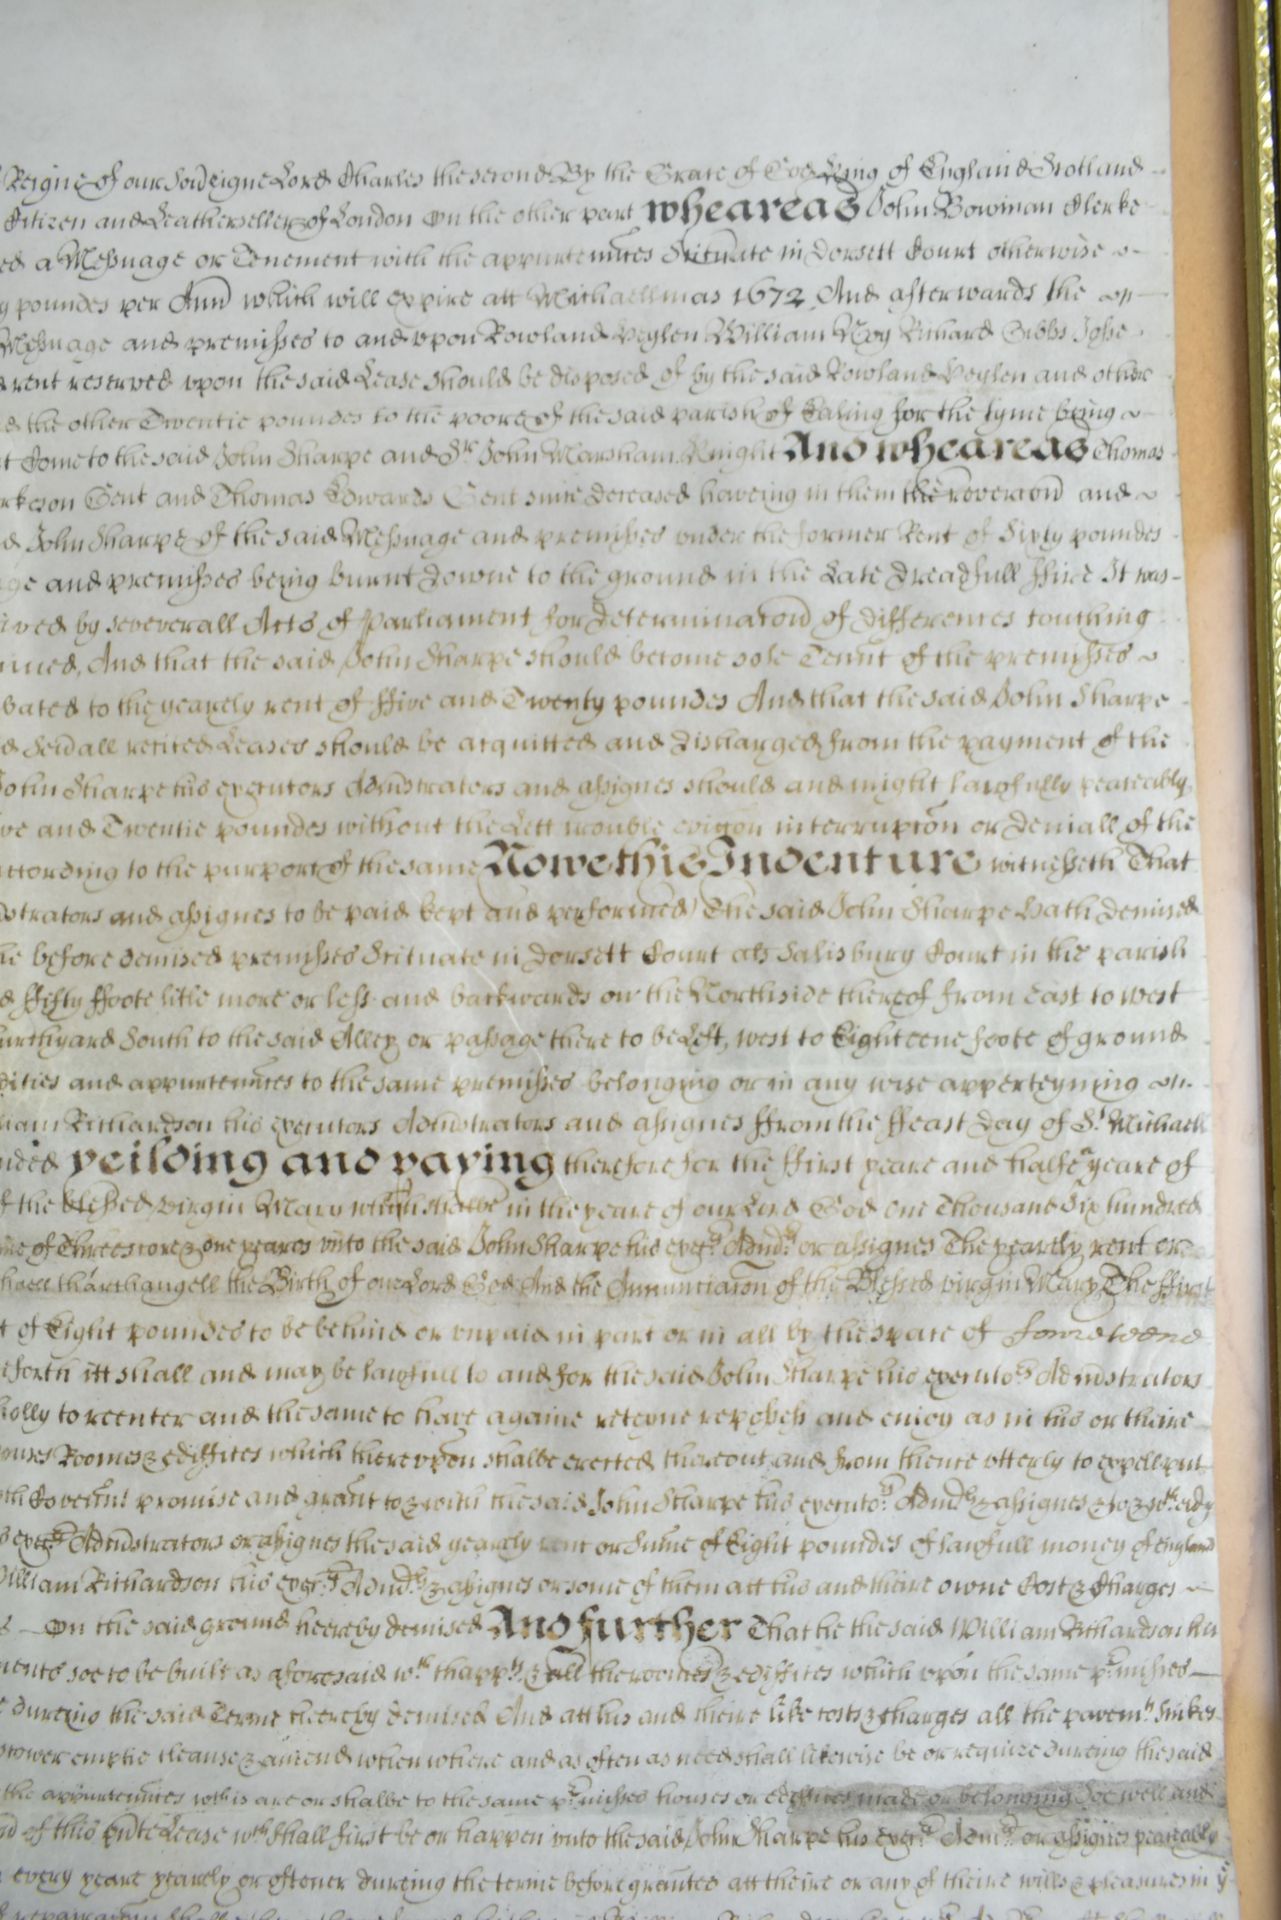 Reigne of our Soveigne Lord Charles the second By the Grace of God King of England Scotland
Citizen and Leatherseller of London On the other part Wheareas John Bowman Clerke
ed a Messuage or Tenement with the appurtenñces Scituate in Dorsett Court otherwise
poundes per Ann which will expire att Michaellmas 1672 And afterwards the
Messuage and premisses to and upon Rowland William Noy Richard Gibbs
rent reserved upon the said Lease should be disposed of by the said Rowland and other
the other Twentie poundes to the poore of the said parish of Ealing for the tyme being
t Come to the said John Sharpe and Sr. John Marsham Knight And wheareas Thomas
rkson Gent and Thomas Edwards Gent since deceased haveing in them the revercon and
d John Sharpe of the said Messuage and premisses under the former Rent of Sixty poundes
ge and premisses being burnt downe to the ground in the Late dreadfull ffire It was
ved by severall Acts of Parliament for Determinacon of differences touching
And that the said John Sharpe should become sole Tennt of the premisses
bated to the yearely rent of ffive and Twenty poundes And that the said John Sharpe
d recited Leases should be acquitted and discharged from the payment of the
John Sharpe his executors Administrators and assignes should and might lawfully peaceably
ve and Twentie poundes without the Lett trouble eviccon interrupcon or deniall of the
ccording to the purport of the same Nowe this Indenture witnesseth That
istrators and assignes to be paid kept and performed The said John Sharpe Hath demised
he before demised premisses Scituate in Dorsett Court als Salisbury Court in the parish
d ffifty ffoote litle more or less and backwards on the Northside thereof from East to west
urthyard South to the said Alley or passage there to be Left, west to Eighteene foote of ground
dities and appurtenñces to the same premisses belonging or in any wise apperteyning
liam Richardson his Executors Administrators and assignes ffrom the ffeast day of St. Michaell
nded yeilding and paying therefore for the ffirst yeare and halfe yeare of
f the blessed virgin Mary which shalbe in the yeare of our Lord God One Thousand Six hundred
me of Threescore & one yeares unto the said John Sharpe his exers Admrs or assignes The yearely rent or
haell tharchangell the Birth of our Lord God And the Annunciacon of the Blessed virgin Mary The ffirst
t of Eight poundes to be behind or unpaid in part or in all by the space of fowreteene
forth itt shall and may be lawfull to and for the said John Sharpe his executors Administrators
holly to reenter and the same to have againe reteyne repossess and enjoy as in his or theire
Roomes & ediffices which thereupon shalbe erected thereout and from thence utterly to expell put
th Covennt promise and grant to & with the said John Sharpe his executors Admrs & assignes & to & wth
exers Administrators or assignes the said yearely rent or Summe of Eight poundes of lawfull money of England
William Richardson his exers Admrs & assignes or some of them att his and theire owne Cost & Charges
On the said ground hereby demised And further That he the said William Richardson his
ments soe to be built as aforesaid wth thapps & all the roomes & ediffices which upon the same pmisses
dureing the said Terme hereby demised And att his and theire like costs & charges all the pavemts sinkes
scower emptie cleanse & amend when where and as often as need shall likewise be or require dureing the said
the appurtenñces wch is are or shalbe to the same pmisses houses or ediffices made or belonging Soe well and
nd of this pnte Lease wch shall first be or happen unto the said John Sharpe his exers Admrs or assignes peaceably
every yeare yearely or oftener dureing the terme before granted att theire or any of theire wills & pleasures in